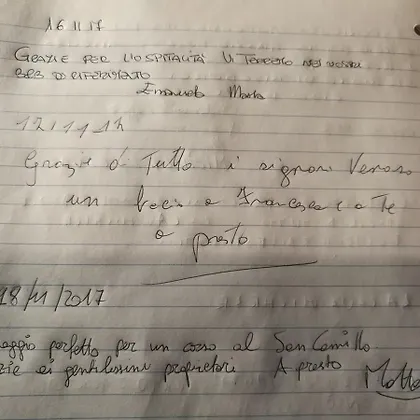 16.11.17
GRAZIE PER L'OSPITALITÀ VI TERREMO NEI NOSTRI
B&B DI RIFERIMENTO
Emanuela Marta
17/11/17
Grazie di Tutto i signori Veroso
un bacio a Francesca e a Te
a presto
18/11/2017
aggio perfetto per un corso al San Camillo.
zie ai gentilissimi proprietari A presto